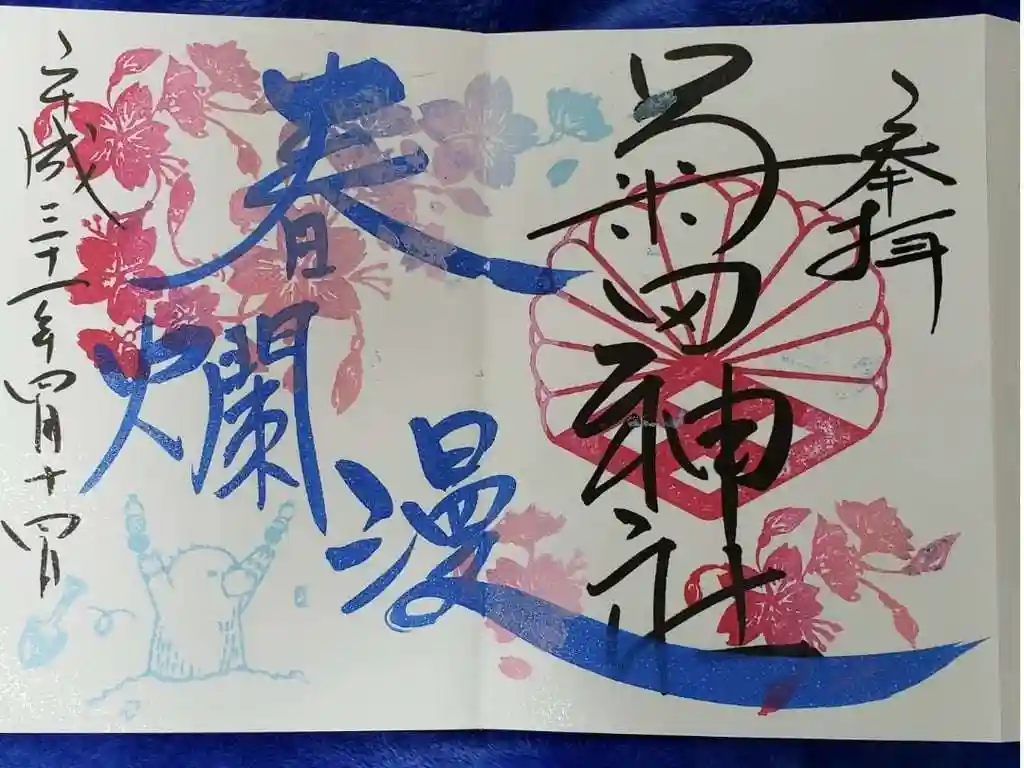 奉拝
菊田神社
春爛漫
平成三十一年四月十四日